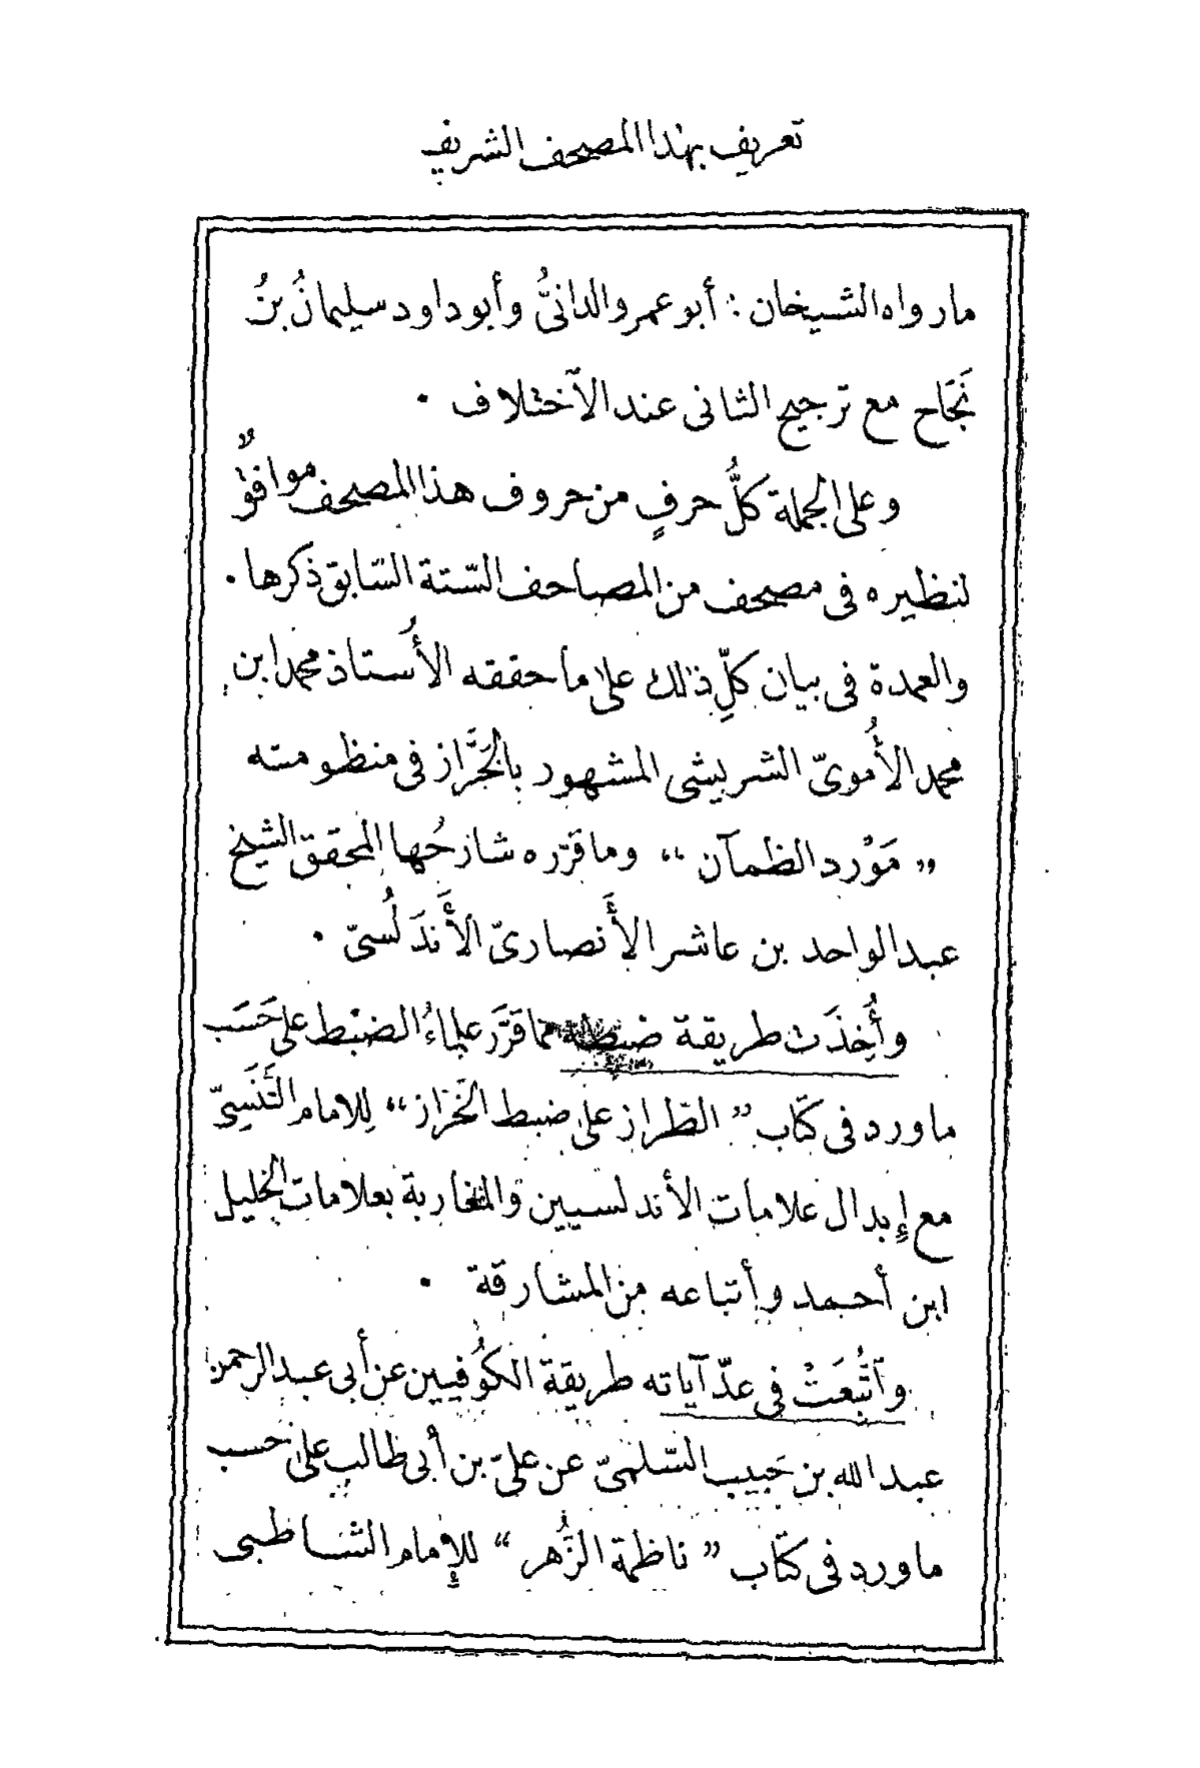 تعريف بهذا المصحف الشريف
ما رواه الشيخان : أبو عمرو الدانىُّ وأبو داود سليمانُ بنُ
نَجَاح مع ترجيح الثانى عند الاختلاف .
وعلى الجملة كلُّ حرفٍ من حروف هذا المصحف موافقٌ
لنظيره فى مصحف من المصاحف السّتة السّابق ذكرها .
والعمدة فى بيان كلِّ ذلك على ما حققه الأُستاذ محمد ابن
محمد الأُموىّ الشريشى المشهور بالخَرَّاز فى منظومته
„ مَوْرد الظمآن “ وما قرّره شارحُها المحقق الشيخ
عبد الواحد بن عاشر الأَنصارىّ الأَندَلُسىّ .
وأُخِذَت طريقة ضبطه مما قَرَّر علماءُ الضبْط على حَسَب
ما ورد فى كتاب ” الطّراز على ضبط الخَرّاز “ لِلامام التَّنَسِىّ
مع إبدال علامات الأندلسيين والمغاربة بعلامات الخليل
ابن أحمد وأتباعه من المشارقة .
وٱتُّبِعَتْ فى عدّ آياته طريقة الكُوفيين عن أبى عبد الرحمن
عبد الله بن حَبيب السّلمىّ عن علىّ بن أبى طالب على حَسب
ما ورد فى كتاب ” ناظمة الزُّهر “ للإمام الشاطبى